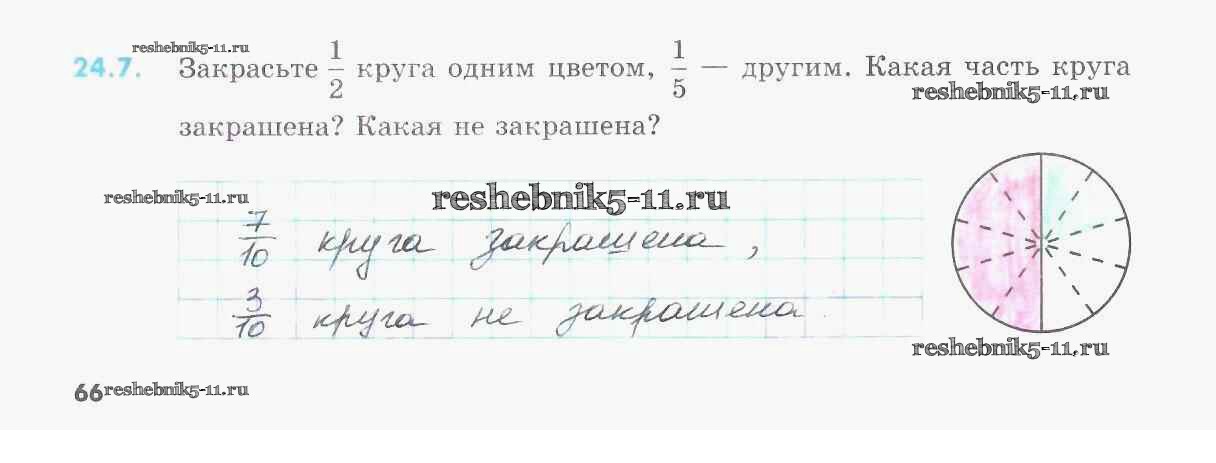 reshebnik5-11.ru
24.7. Закрасьте 1/2 круга одним цветом, 1/5 — другим. Какая часть круга
reshebnik5-11.ru
закрашена? Какая не закрашена?
reshebnik5-11.ru
reshebnik5-11.ru
7/10 круга закрашена,
3/10 круга не закрашена.
reshebnik5-11.ru
66
reshebnik5-11.ru